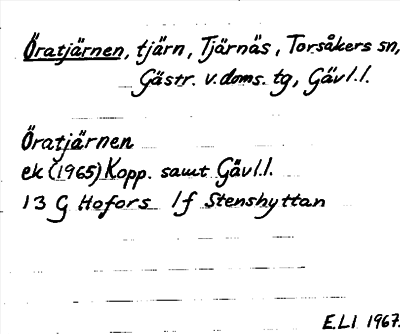 Öratjärnen, tjärn, Tjärnäs, Torsåkers sn,
Gästr. v.doms. tg, Gävl.l.
Öratjärnen
ek (1965) Kopp. samt Gävl.l.
13 G Hofors 1f Stenshyttan
E.Ll 1967.